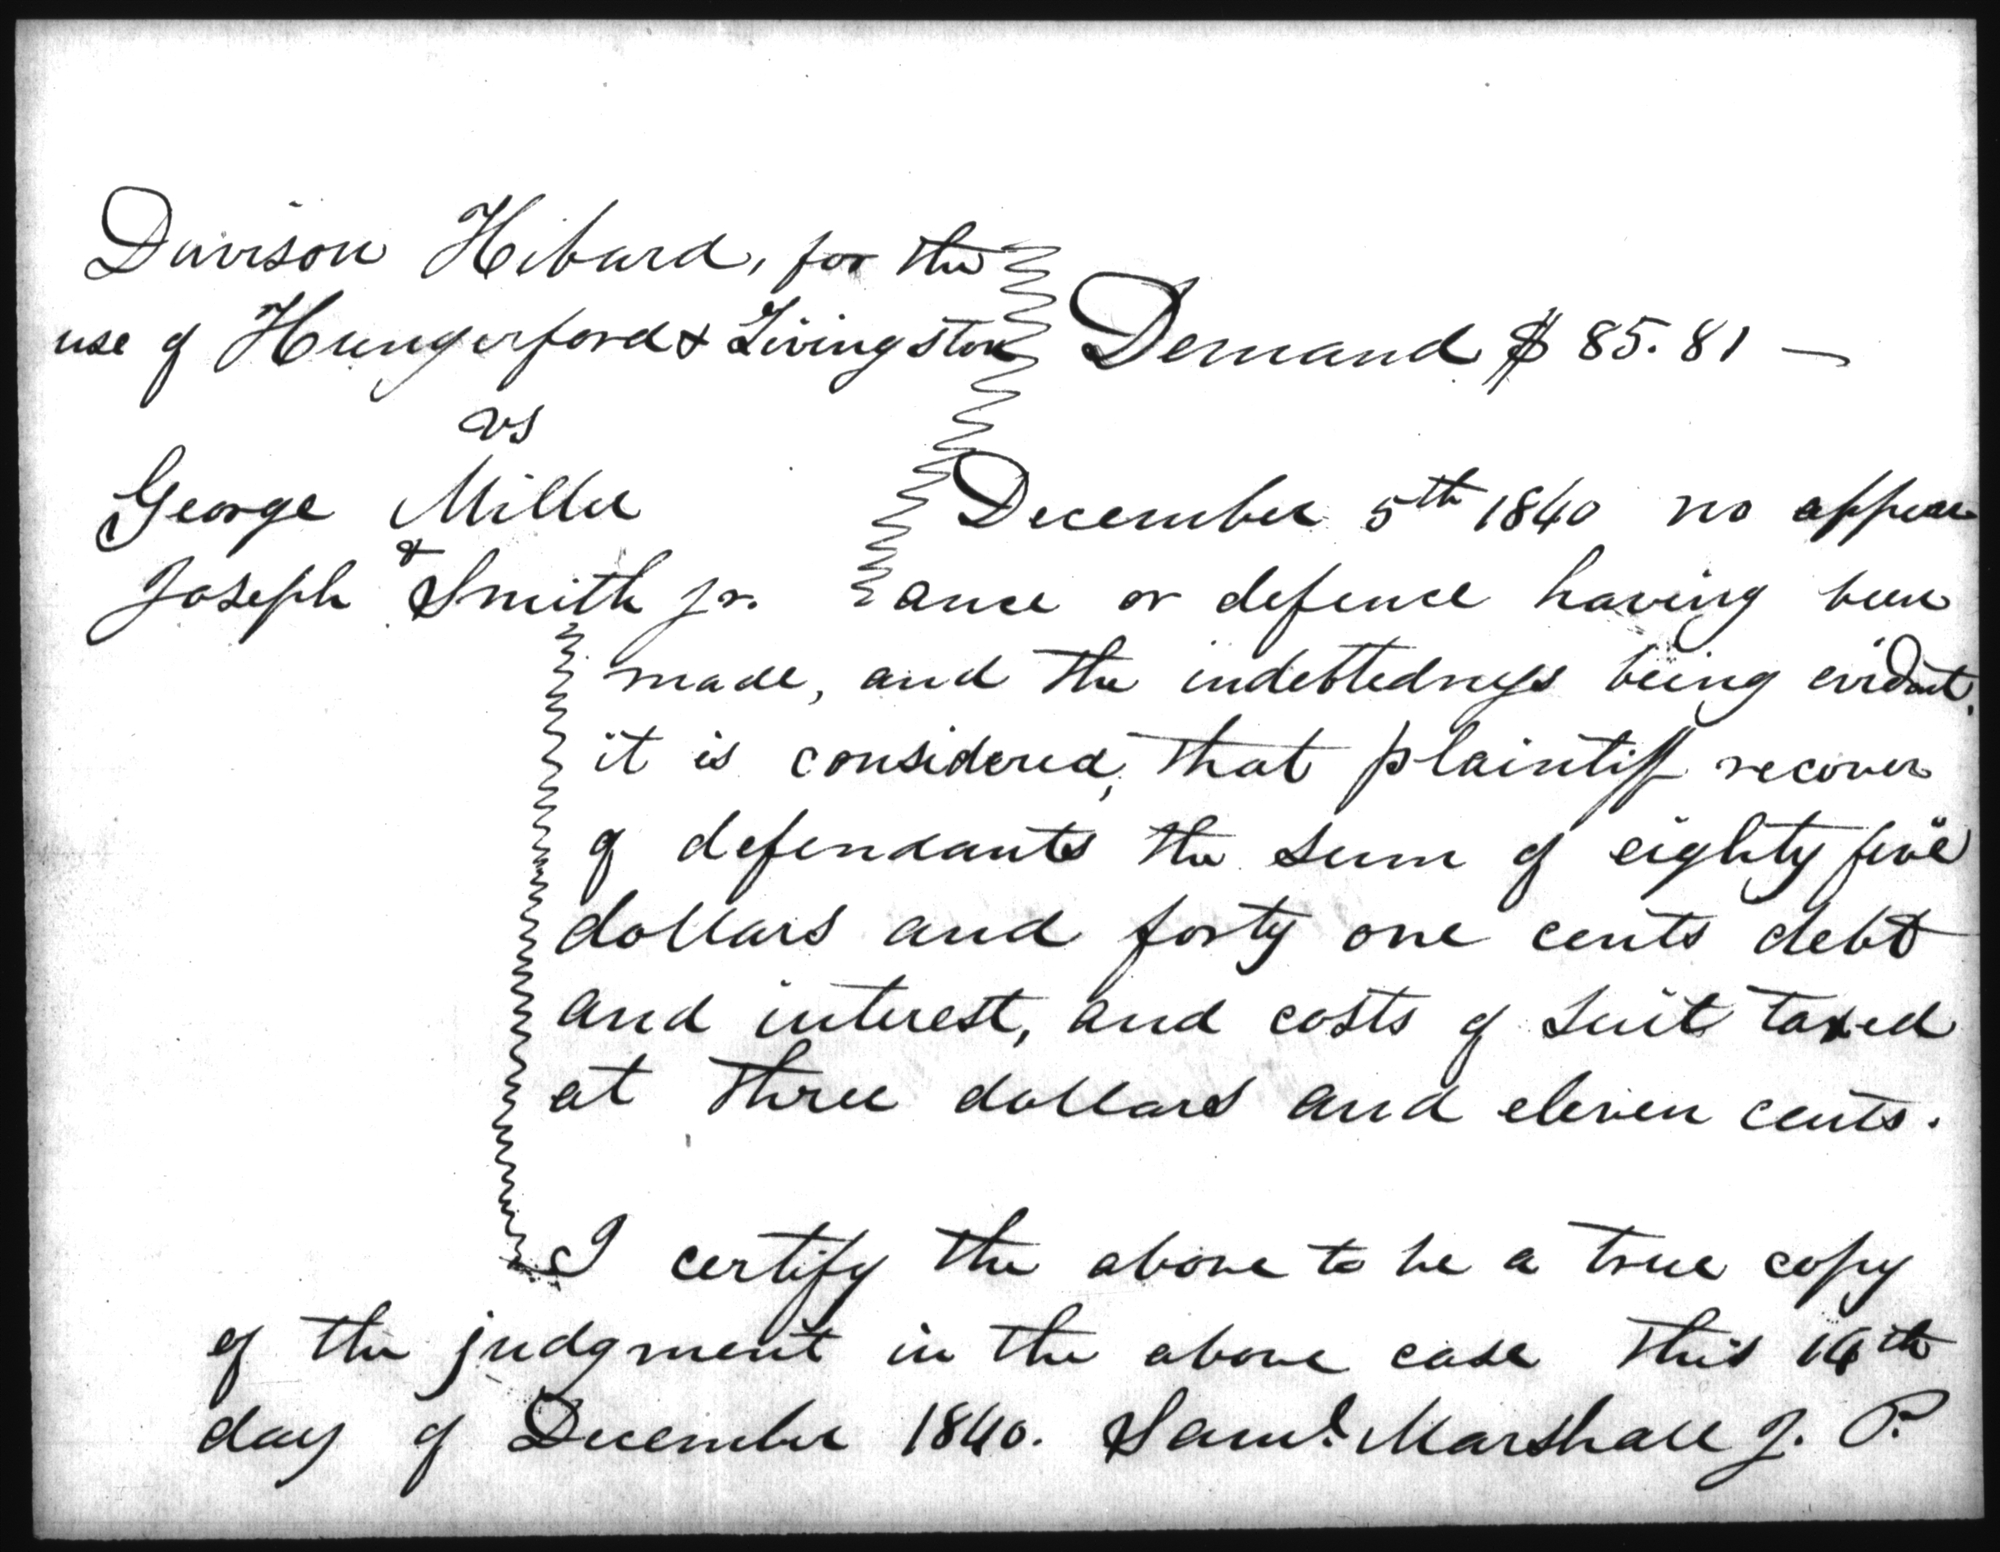 Davison Hibard, for the
use of Hungerford & Livingston
vs
George Miller
&
Joseph Smith jr.
Demand $ 85.81 —
December 5th 1840 no appear
ance or defence having been
made, and the indebtedness being evident,
it is considered, that plaintiff recover
of defendants the sum of eighty five
dollars and forty one cents debt
and interest, and costs of suit taxed
at three dollars and eleven cents.
I certify the above to be a true copy
of the judgment in the above case this 14th
day of December 1840. Saml. Marshall J. P.